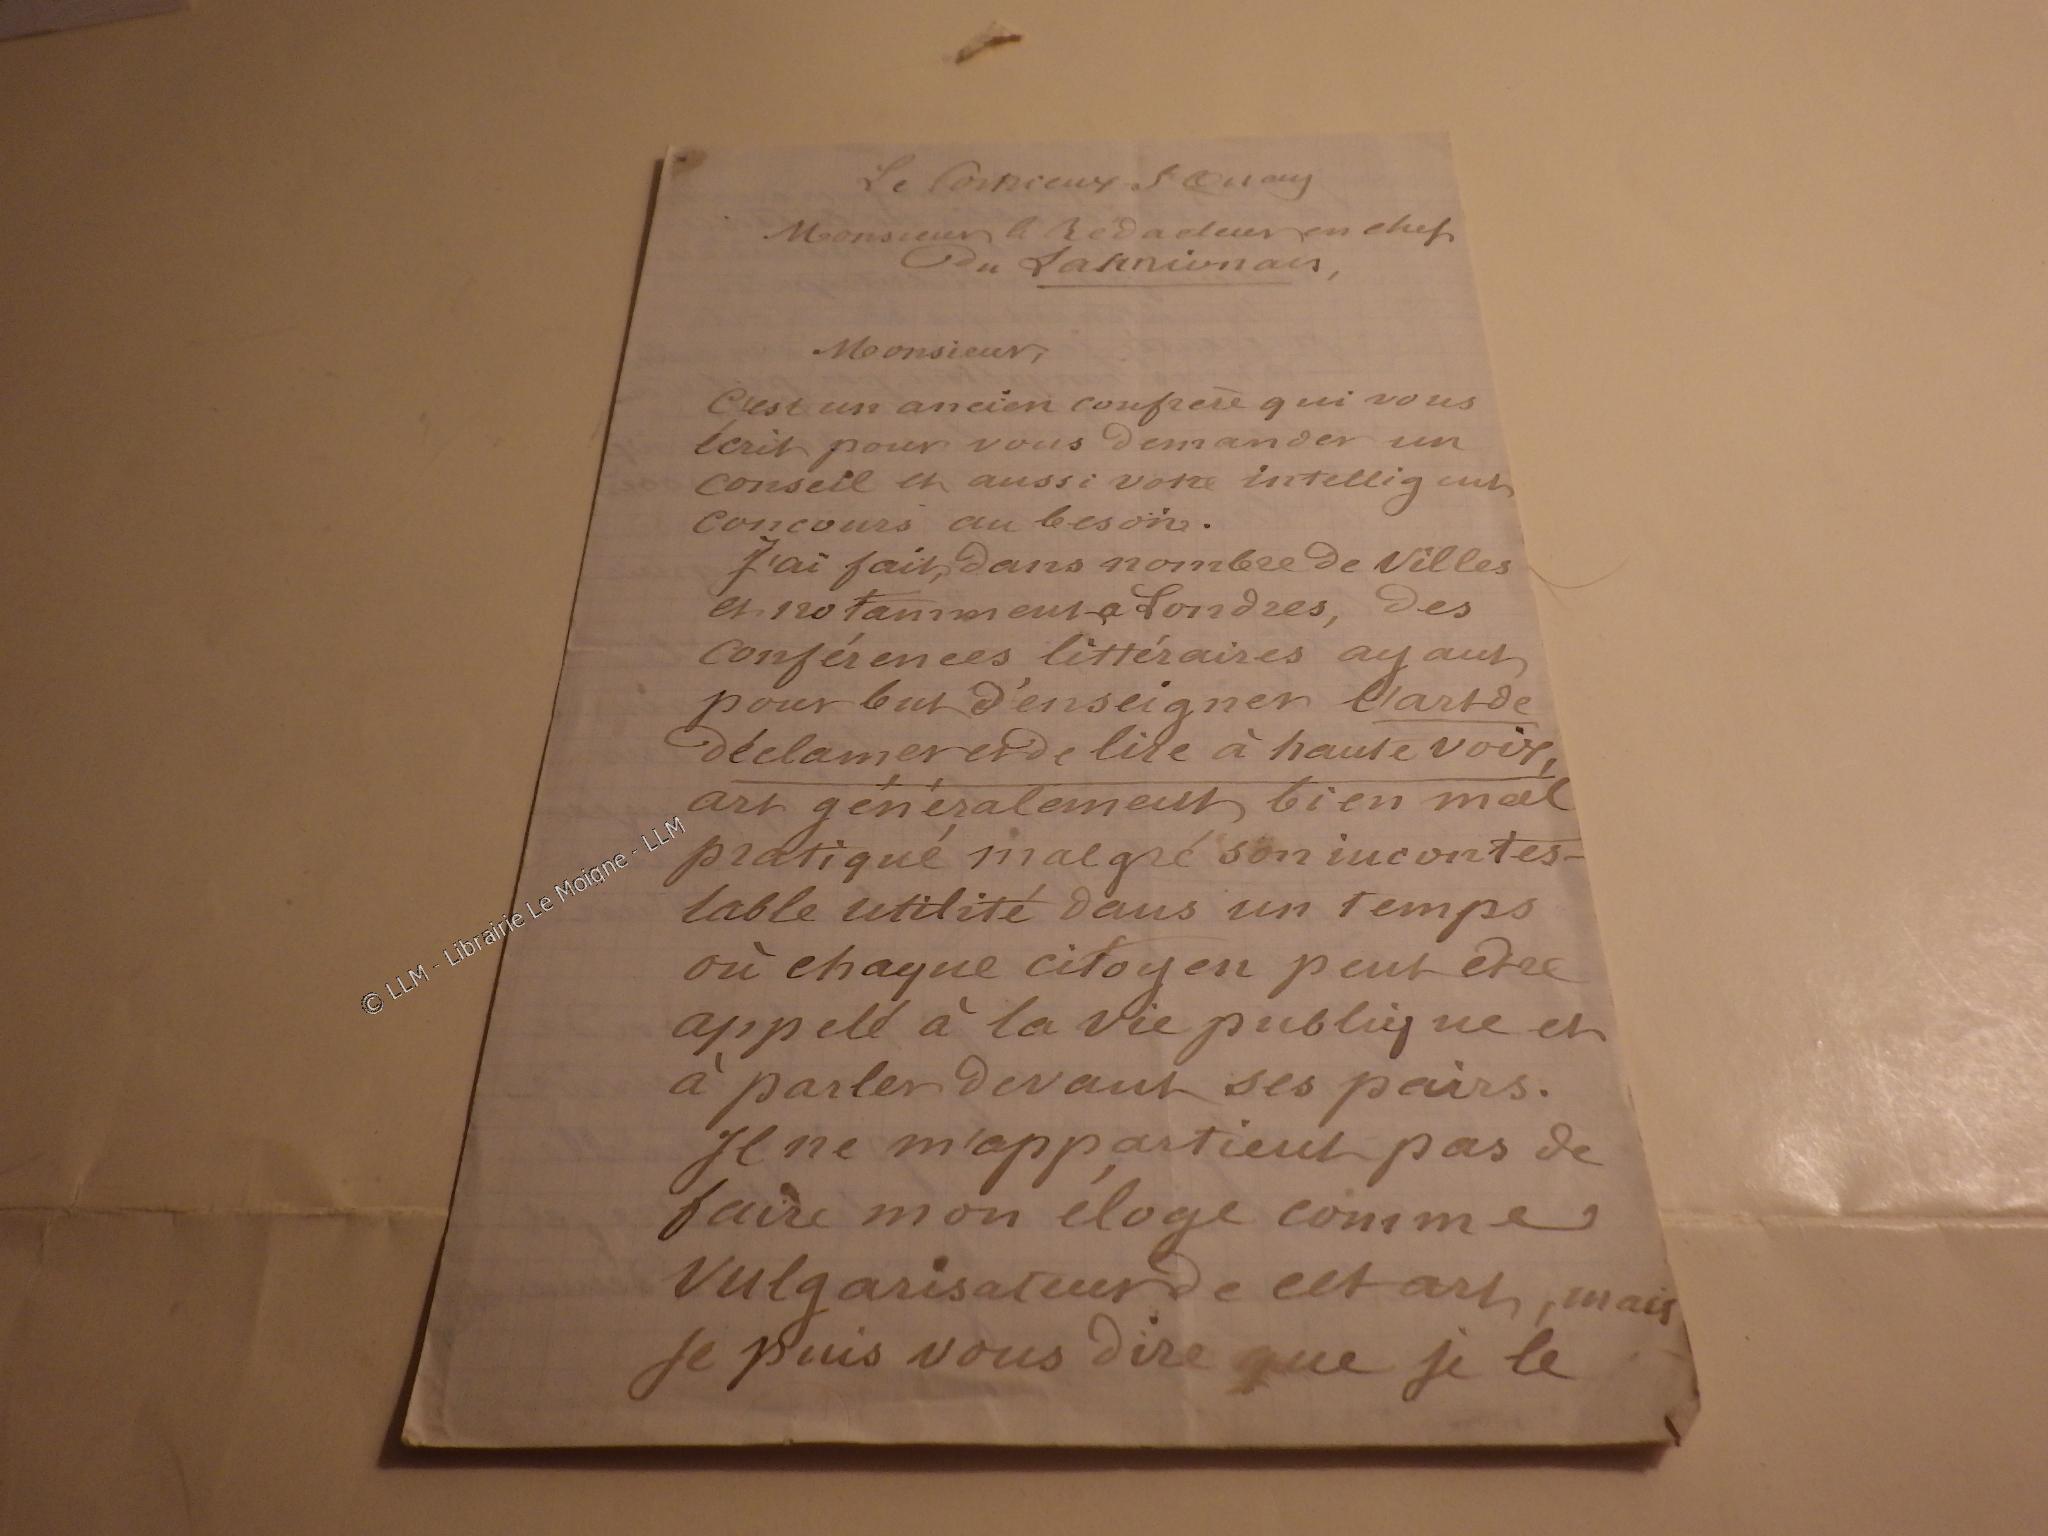 Le Corrieux St Quay
Monsieur le Rédacteur en chef
Du Lannionais,
Monsieur,
C'est un ancien confrère qui vous
écrit pour vous demander un
conseil et aussi votre intelligent
concours au besoin.
J'ai fait, dans nombre de Villes
et notamment à Londres, des
conférences littéraires ayant
pour but d'enseigner l'art de
déclamer et de lire à haute voix,
art généralement bien mal
pratiqué malgré son incontes-
table utilité dans un temps
où chaque citoyen peut être
appelé à la vie publique et
à parler devant ses pairs.
Il ne m'appartient pas de
faire mon éloge comme
vulgarisateur de cet art, mais
je puis vous dire que je le
© LLM - Librairie Le Moigne - LLM